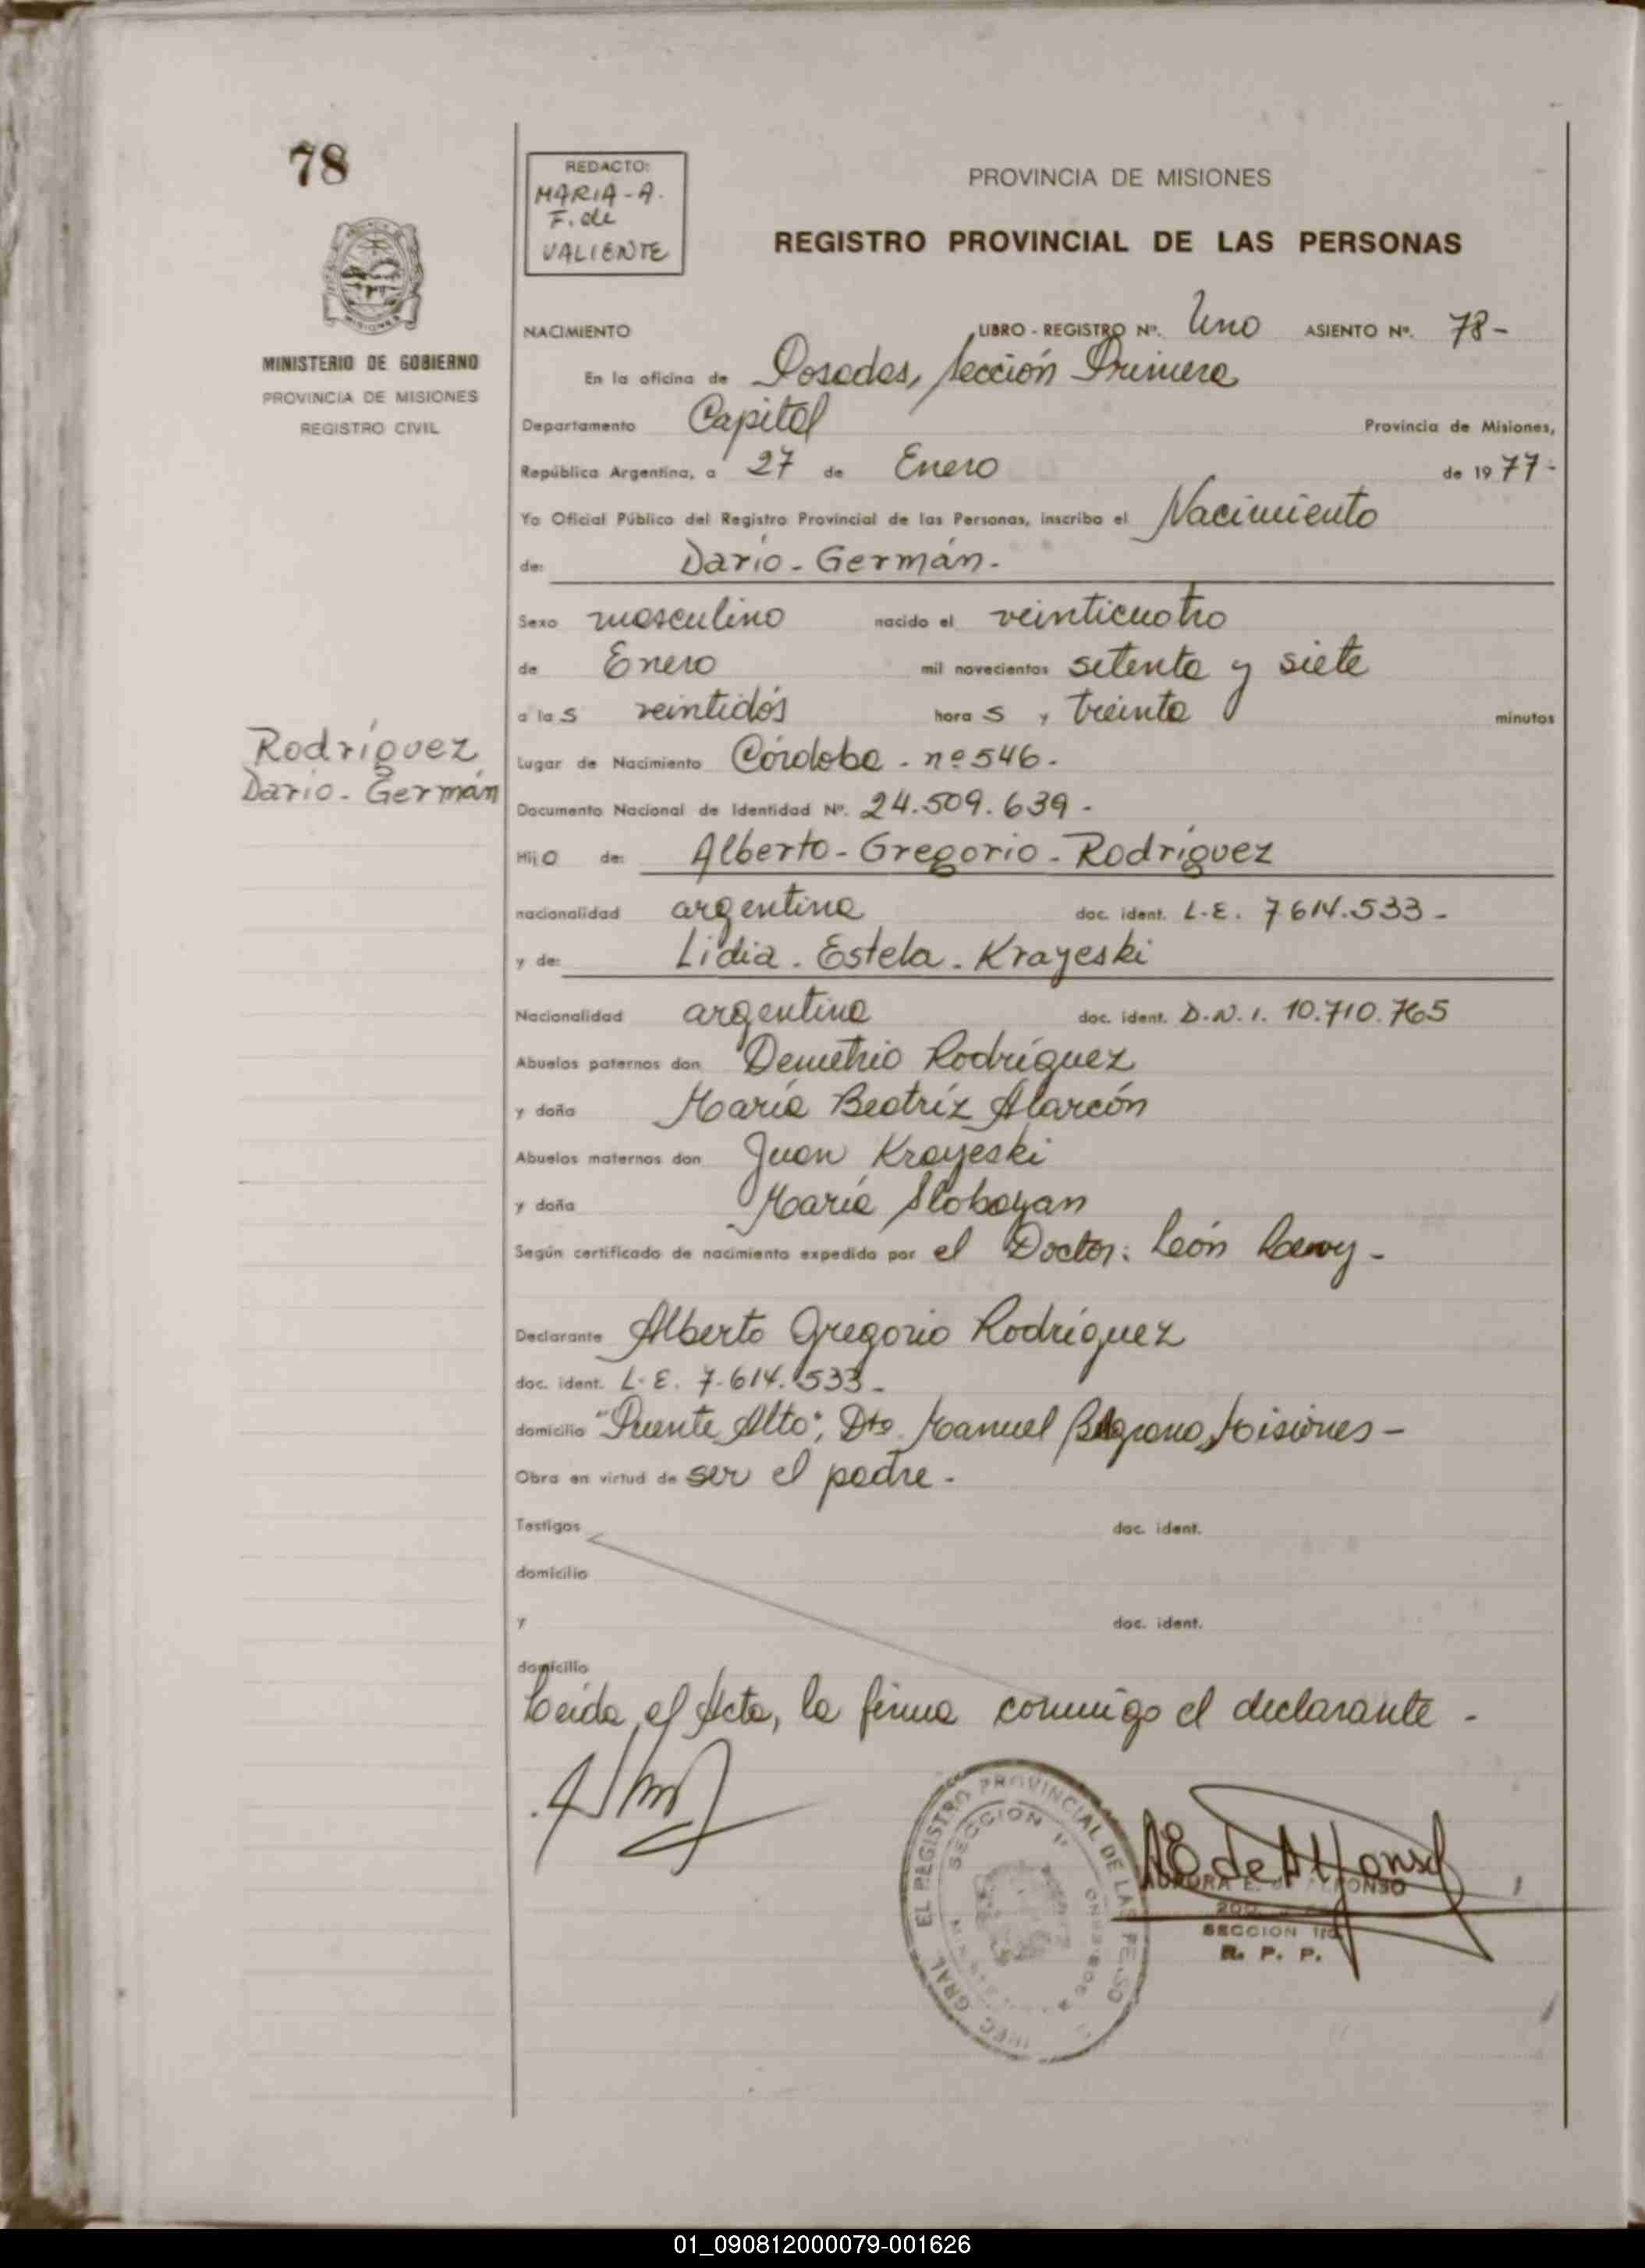 78
REDACTO:
MARIA-A.
F. de
VALIENTE
PROVINCIA DE MISIONES
REGISTRO PROVINCIAL DE LAS PERSONAS
MISIONES
MINISTERIO DE GOBIERNO
PROVINCIA DE MISIONES
REGISTRO CIVIL
NACIMIENTO LIBRO - REGISTRO Nº. Uno ASIENTO Nº. 78-
En la oficina de Posadas, Sección Primera
Departamento Capital Provincia de Misiones,
República Argentina, a 27 de Enero de 1977-
Yo Oficial Público del Registro Provincial de las Personas, inscribo el Nacimiento
de: Darío - Germán.
Sexo masculino nacido el veinticuatro
de Enero mil novecientos setenta y siete
a las veintidós horas y treinta minutos
Lugar de Nacimiento Córdoba - nº 546-
Rodríguez
Darío - Germán
Documento Nacional de Identidad Nº. 24.509.639-
Hijo de: Alberto - Gregorio - Rodríguez
nacionalidad argentina doc. ident. L.E. 7614.533-
y de: Lidia - Estela - Krayeski
Nacionalidad argentina doc. ident. D.N.I. 10.710.765
Abuelos paternos don Demetrio Rodríguez
y doña María Beatríz Alarcón
Abuelos maternos don Juan Krayeski
y doña María Slobayan
Según certificado de nacimiento expedido por el Doctor: León
Declarante Alberto Gregorio Rodríguez
doc. ident. L.E. 7.614.533-
domicilio "Puente Alto", Dto. Manuel Belgrano, Misiones-
Obra en virtud de ser el padre-
Testigos doc. ident.
domicilio
y doc. ident.
domicilio
Leída el Acta, la firma conmigo el declarante-
EL REGISTRO PROVINCIAL DE LAS
SECCION 1ª
GRAL
A E. de Alfonso
AURORA E. de ALFONSO
SECCION 1ra
R. P. P.
01_090812000079-001626